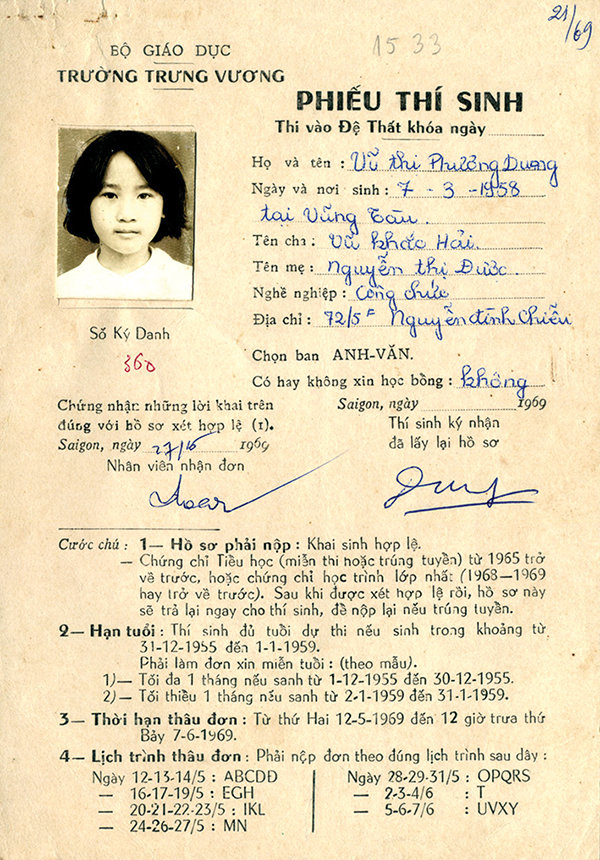 21/69
1533
BỘ GIÁO DỤC
TRƯỜNG TRƯNG VƯƠNG
PHIẾU THÍ SINH
Thi vào Đệ Thất khóa ngày
Họ và tên : Vũ thi Phương Dung
Ngày và nơi sinh : 7 - 3 - 1958
tại Vũng Tàu.
Tên cha : Vũ khắc Hải.
Tên mẹ : Nguyễn thị Được.
Nghề nghiệp : Công chức
Địa chỉ : 72/5F Nguyễn đình Chiểu
Số Ký Danh
360
Chọn ban ANH-VĂN.
Có hay không xin học bổng : không
Chứng nhận những lời khai trên
đúng với hồ sơ xét hợp lệ (1).
Saigon, ngày 27/5 1969
Nhân viên nhận đơn
Saigon, ngày 1969
Thí sinh ký nhận
đã lấy lại hồ sơ
Dung
Cước chú : 1— Hồ sơ phải nộp : Khai sinh hợp lệ.
— Chứng chỉ Tiểu học (miễn thi hoặc trúng tuyển) từ 1965 trở
về trước, hoặc chứng chỉ học trình lớp nhất (1968—1969
hay trở về trước). Sau khi được xét hợp lệ rồi, hồ sơ này
sẽ trả lại ngay cho thí sinh, để nộp lại nếu trúng tuyển.
2— Hạn tuổi : Thí sinh đủ tuổi dự thi nếu sinh trong khoảng từ
31-12-1955 đến 1-1-1959.
Phải làm đơn xin miễn tuổi : (theo mẫu).
1)— Tối đa 1 tháng nếu sanh từ 1-12-1955 đến 30-12-1955.
2)— Tối thiểu 1 tháng nếu sanh từ 2-1-1959 đến 31-1-1959.
3— Thời hạn thâu đơn : Từ thứ Hai 12-5-1969 đến 12 giờ trưa thứ
Bảy 7-6-1969.
4— Lịch trình thâu đơn : Phải nộp đơn theo đúng lịch trình sau đây :
Ngày 12-13-14/5 : ABCDĐ
— 16-17-19/5 : EGH
— 20-21-22-23/5 : IKL
— 24-26-27/5 : MN
Ngày 28-29-31/5 : OPQRS
— 2-3-4/6 : T
— 5-6-7/6 : UVXY